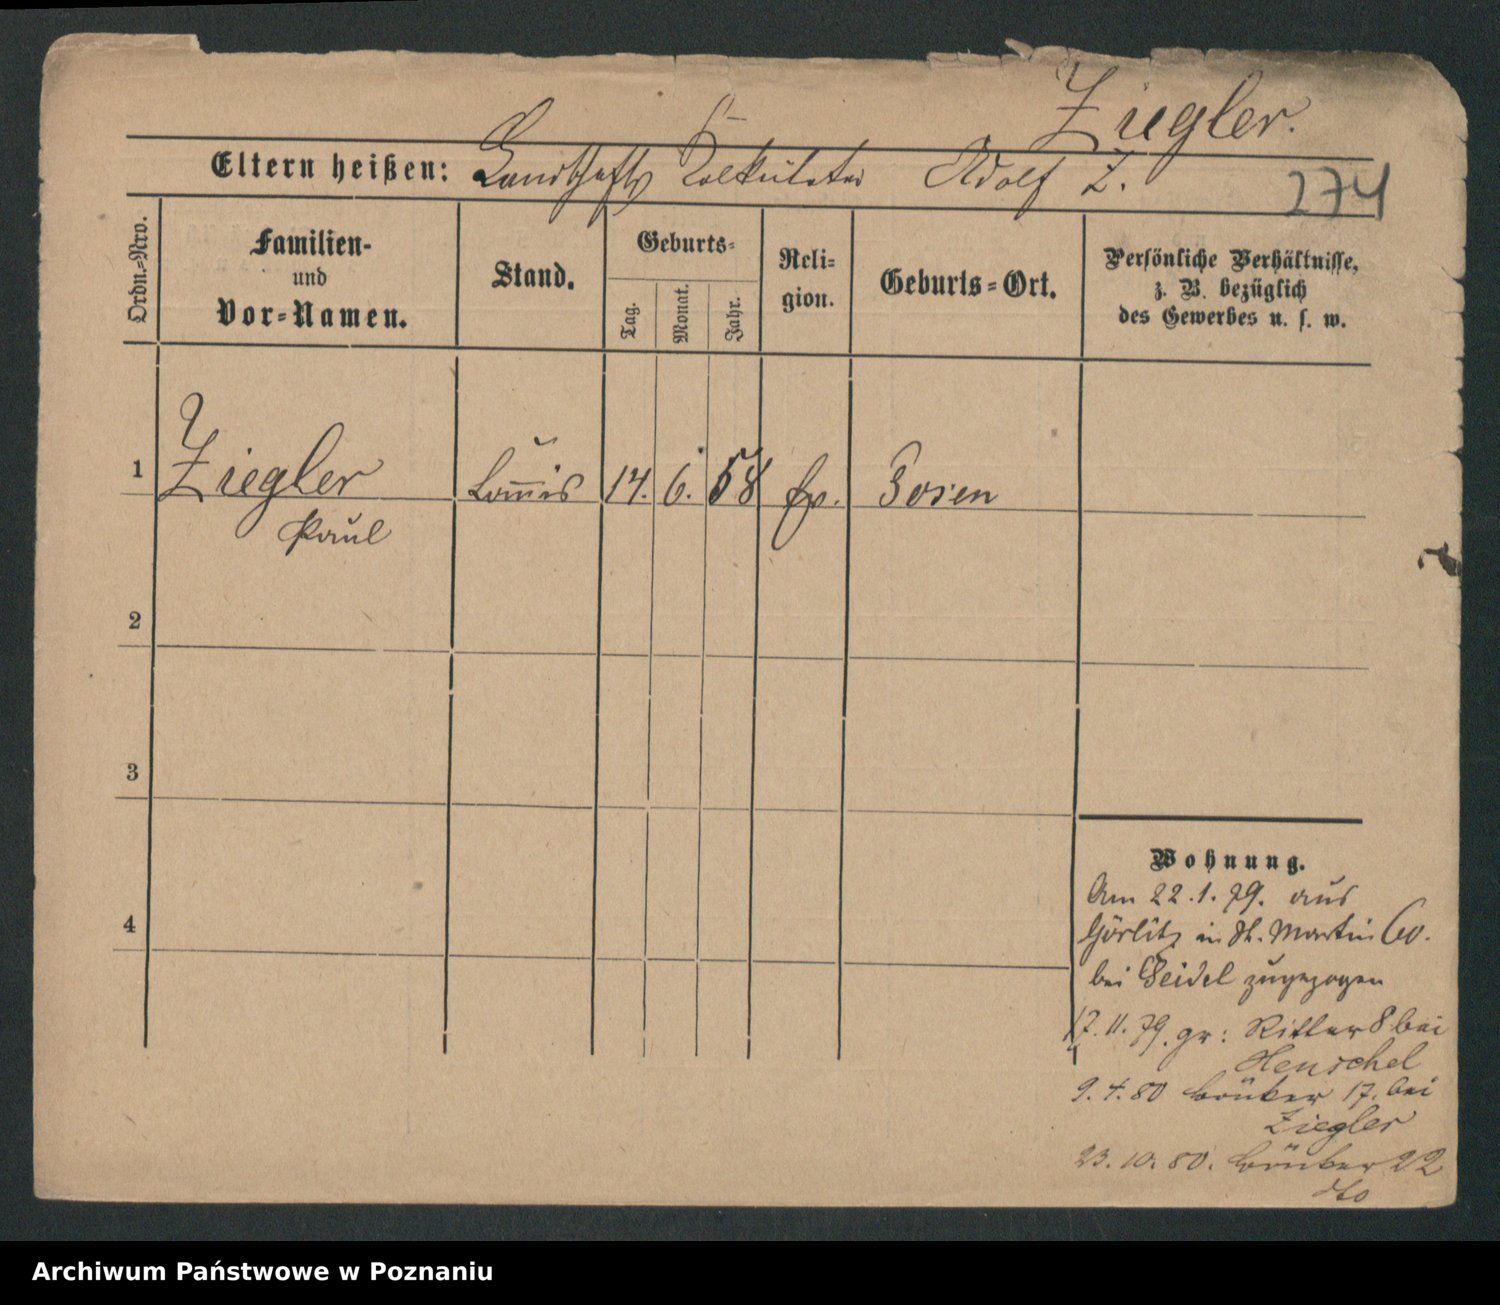 Ziegler.
Eltern heißen: Landschafts Kalkulator Adolf Z.
274
Ordn.-Nro.
Familien-
und
Vor-Namen.
Stand.
Geburts-
Tag.
Monat.
Jahr.
Reli-
gion.
Geburts-Ort.
Persönliche Verhältnisse,
z. B. bezüglich
des Gewerbes u. s. w.
1
Ziegler
Paul
Commis
14.
6.
58
ev.
Posen
2
3
4
Wohnung.
Am 22.1.79. aus
Görlitz in St. Martin 60.
bei Seidel zugezogen
17.11.79. gr: Ritter 8 bei
Henschel
9.4.80 Bäcker 17. bei
Ziegler
23.10.80. Bäcker 22
dto
Archiwum Państwowe w Poznaniu